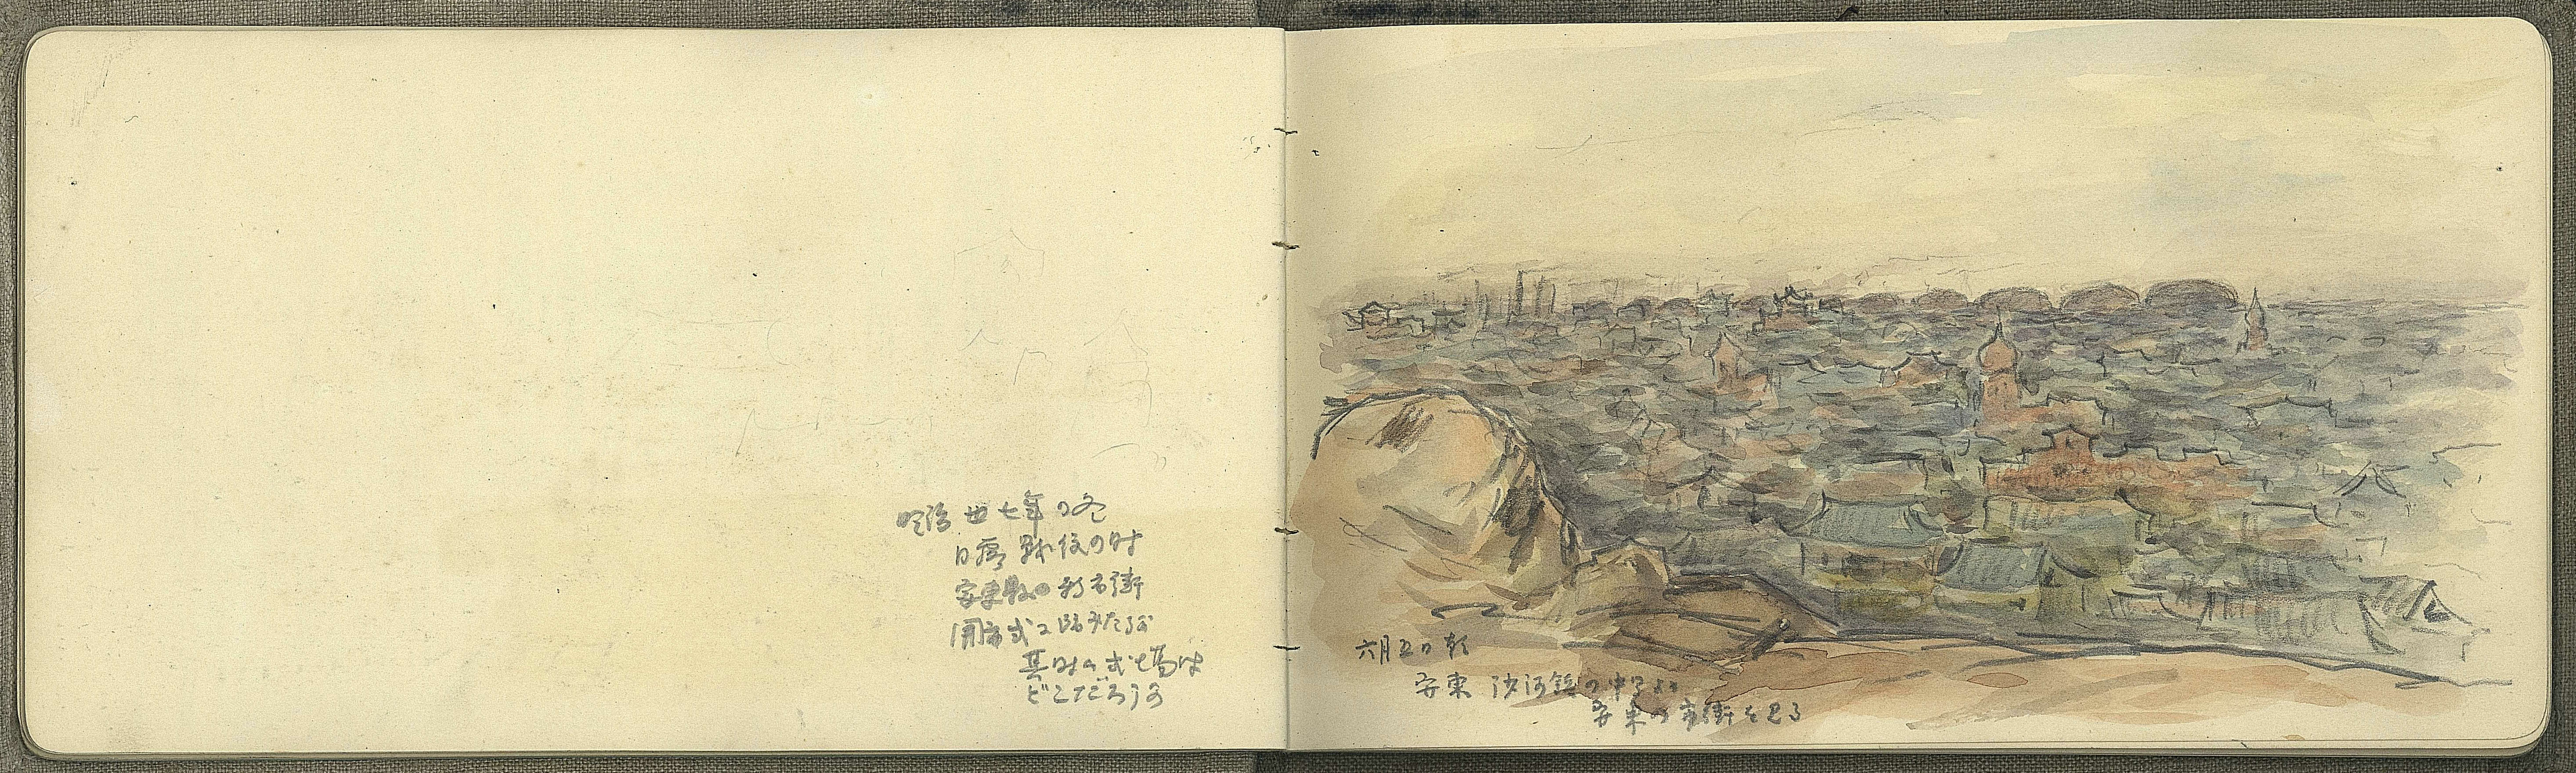 明治 丗七年の冬
日露戦役の時
安東縣の新市街
開市式に臨みたるが
其時の式場は
どこだろうか
六月五日朝
安東 沙河鎮の中學より
安東の市街を見る